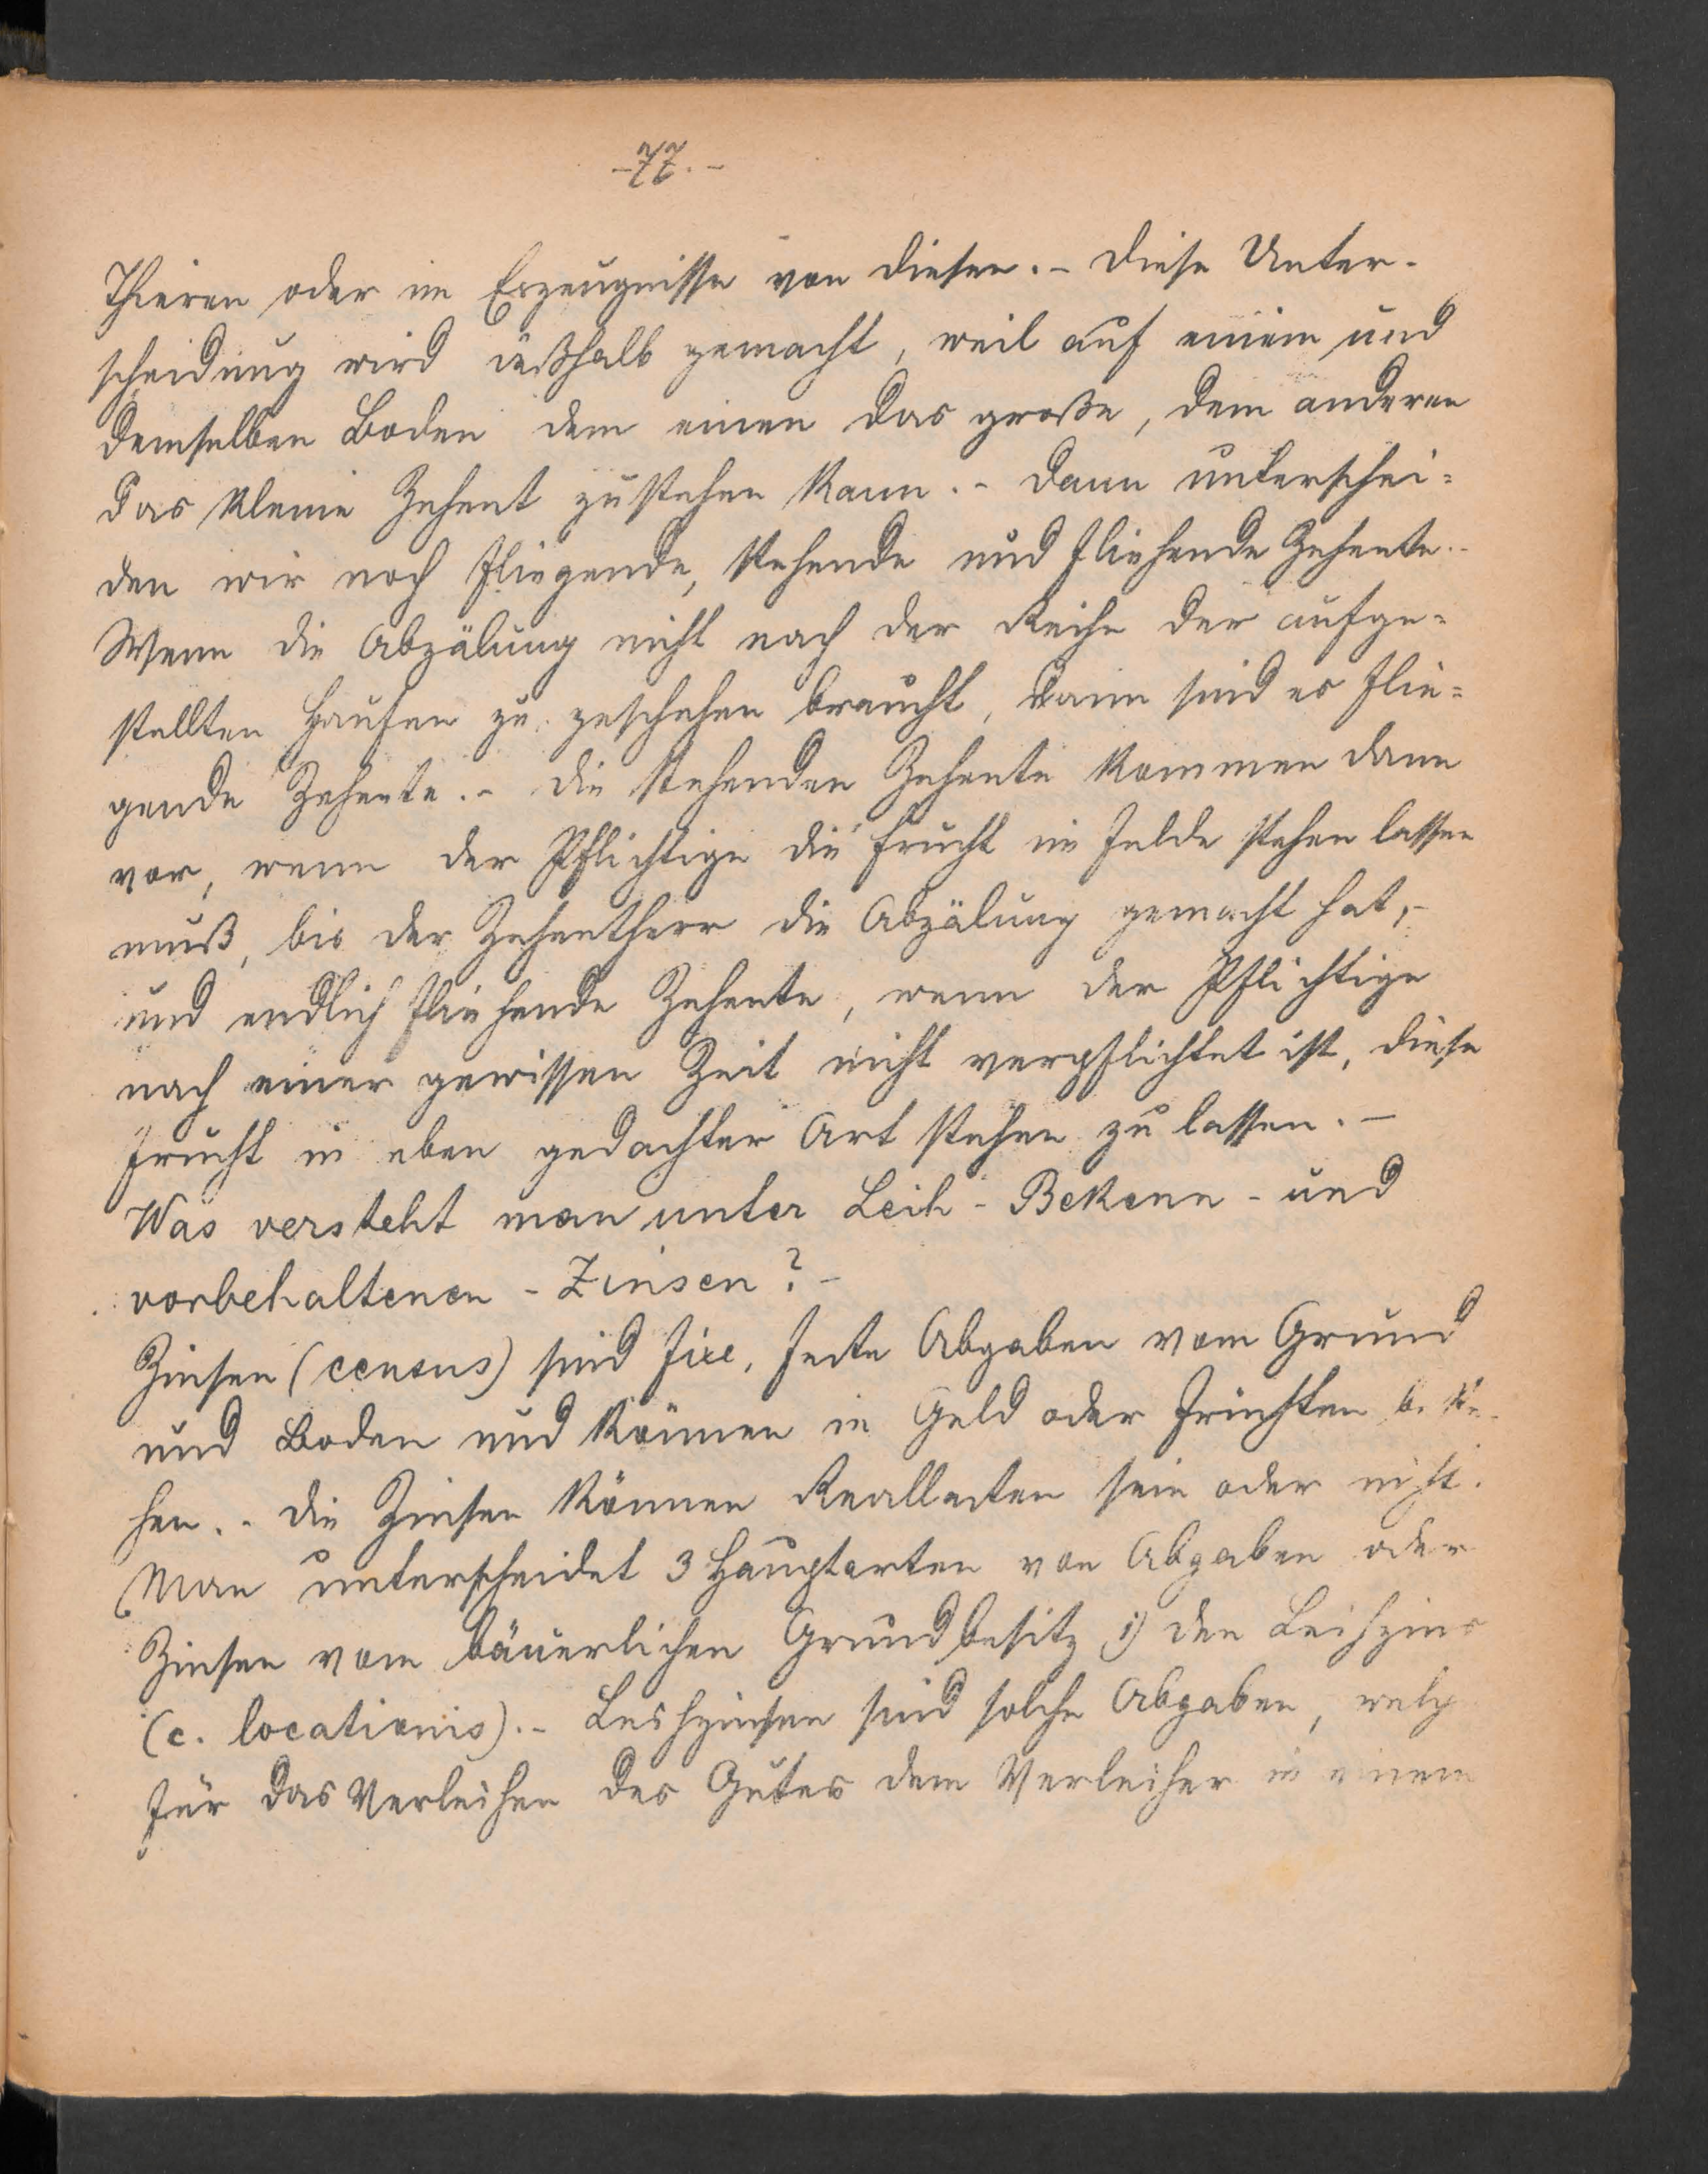 -77.-
Thieren oder im Erzeugnisse von diesen.- Diese Unter-
scheidung wird deßhalb gemacht, weil auf einem und
demselben Boden dem einen das große, dem anderen
das kleine Zehent zustehen kann.- Dann unterschei-
den wir noch fliegende, stehende und fliehende Zehente.-
Wenn die Abzälung nicht nach der Reihe der aufge-
stellten Haufen zu geschehen braucht, dann sind es flie-
gende Zehente.- Die stehenden Zehente kommen dann
vor, wenn der Pflichtige die Frucht im Felde stehen lassen
muß, bis der Zehentherr die Abzälung gemacht hat,-
und endlich fliehende Zehente, wenn der Pflichtige
nach einer gewissen Zeit nicht verpflichtet ist, diese
Frucht in eben gedachter Art stehen zu lassen.-
Was versteht man unter Leih- Bekenn- und
vorbehaltenen - Zinsen?-
Zinsen (census) sind fixe, feste Abgaben vom Grund
und Boden und können in Geld oder Früchten beste-
hen.- Die Zinsen können Reallasten sein oder nicht.
Man unterscheidet 3 Hauptarten von Abgaben oder
Zinsen vom bäuerlichen Grundbesitz 1) den Leihzins
(c. locationis).- Leihzinsen sind solche Abgaben, welche
für das Verleihen des Gutes dem Verleiher in einem